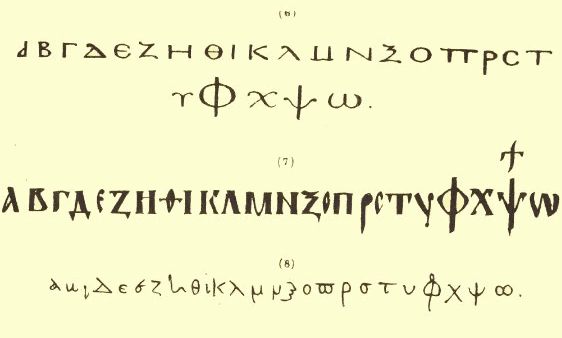 (6)
α Β Γ Δ Ε Ζ Η Θ Ι Κ Λ Μ Ν Ξ Ο Π Ρ С Τ
Υ Φ Χ Ψ ω.
(7)
Α Β Γ Δ Ε Ζ Η Θ Ι Κ Λ Μ Ν Ξ Ο Π Ρ С Τ Υ Φ Χ Ψ ω
(8)
α υ γ Δ ε σ ζ h θ ι κ λ μ μ ξ ο ϖ ρ σ τ υ φ χ ψ ω.